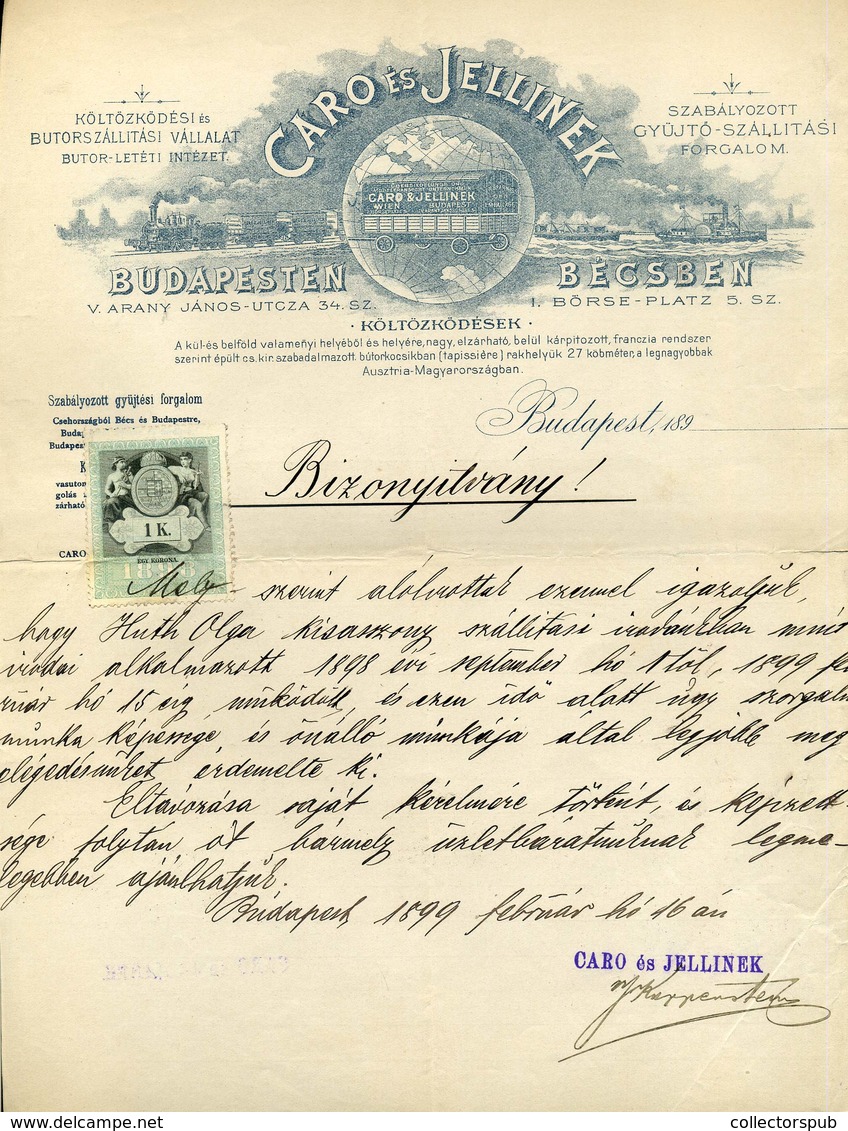 CARO ÉS JELLINEK
KÖLTÖZKÖDÉSI és
BUTORSZÁLLITÁSI VÁLLALAT
BUTOR-LETÉTI INTÉZET.
SZABÁLYOZOTT
GYÜJTŐ-SZÁLLITÁSI
FORGALOM.
CARO & JELLINEK
WIEN BUDAPEST
BUDAPESTEN
V. ARANY JÁNOS-UTCZA 34. SZ.
BÉCSBEN
I. BÖRSE-PLATZ 5. SZ.
· KÖLTÖZKÖDÉSEK ·
A kül-és belföld valameñyi helyéből és helyére, nagy, elzárható, belül kárpitozott, franczia rendszer
szerint épült cs. kir. szabadalmazott bútorkocsikban (tapissière) rakhelyük 27 köbméter, a legnagyobbak
Ausztria-Magyarországban.
Szabályozott gyüjtési forgalom
Csehországból Bécs és Budapestre,
Buda
Budapes
K
vasutor
golás
zárható
CARO
Budapest, 189
Bizonyitvány!
1 K.
EGY KORONA.
1898
Mely szerint alólirottak ezennel igazoljuk,
hogy Huth Olga kisasszony szállitási irodánkban mint
irodai alkalmazott 1898 évi september hó 1től, 1899 feb
ruár hó 15 eig működött, és ezen idő alatt úgy szorgalm
munka képessége, és önálló munkája által legjobb meg
elégedésünket érdemelte ki.
Eltávozása saját kérelmére történt, és képzett-
sége folytán őt bármely üzletbarátunknak legme-
legebben ajánlhatjuk.
Budapest, 1899 február hó 16 án
CARO és JELLINEK
collectorspub